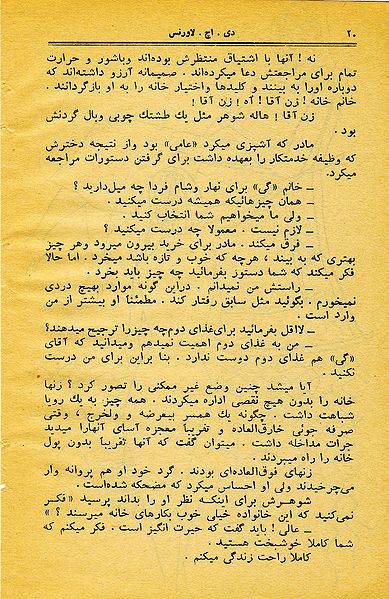 ۲۰
دی . اچ . لاورنس
نه ! آنها با اشتیاق منتظرش بوده‌اند وباشور و حرارت
تمام برای مراجعتش دعا میکرده‌اند . صمیمانه آرزو داشته‌اند که
دوباره اورا به بینند و کلیدها واختیار خانه را به او بازگردانند .
خانم خانه ! زن آقا ! آه ! زن آقا !
زن آقا ! هاله شوهر مثل یك طشتك چوبی وبال گردنش
بود .
مادر که آشپزی میکرد «عامی» بود واز نتیجه دخترش
که وظیفه خدمتکار را بعهده داشت برای گرفتن دستورات مراجعه
میکرد.
ــ خانم «گی» برای نهار وشام فردا چه میل‌دارید ؟
ــ همان چیزهائیکه همیشه درست میکنید .
ــ ولی ما میخواهیم شما انتخاب کنید .
ــ لازم نیست . معمولا چه درست میکنید ؟
ــ فرق میکند . مادر برای خرید بیرون میرود وهر چیز
بهتری که به بیند ؛ هرچه که خوب و تازه باشد میخرد . اما حالا
فکر میکند که شما دستور بفرمائید چه چیز باید بخرد .
ــ راستش من نمیدانم . دراین گونه موارد بهیچ دردی
نمیخورم . بگوئید مثل سابق رفتار کند . مطمئناً او بیشتر از من
وارد است .
ــ لااقل بفرمائید برای‌غذای دوم‌چه چیزرا ترجیح میدهند؟
ــ من به غذای دوم اهمیت نمیدهم ومیدانید که آقای
«گی» هم غذای دوم دوست ندارد . بنا براین برای من درست
نکنید .
آیا میشد چنین وضع غیر ممکنی را تصور کرد ؟ زنها
خانه را بدون هیچ نقصی اداره میکردند . همه چیز به یك رویا
شباهت داشت . چگونه یك همسر بیعرضه و ولخرج ، وقتی
صرفه جوئی خارق‌العاده و تقریباً معجزه آسای آنهارا میدید
جرات مداخله داشت . میتوان گفت که آنها تقریباً بدون پول
خانه را راه میبردند .
زنهای فوق‌العاده‌ای بودند . گرد خود او هم پروانه وار
می‌چرخیدند ولی او احساس میکرد که مضحکه شده‌است .
شوهرش برای اینکه نظر او را بداند پرسید «فکر
نمی‌کنید که این خانواده خیلی خوب بکارهای خانه میرسند ؟ »
ــ عالی ! باید گفت که حیرت انگیز است . فکر میکنم که
شما کاملا خوشبخت هستید .
کاملا راحت زندگی میکنم .